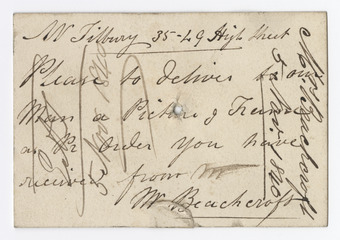 Mr Tilbury 35-49 High Street
Please to deliver to our
Man a Picture & Frame
as Pr order you have
received from Mr
Mr Beachcroft
Mr Beachcroft
5 Novr 1840
5 Novr 1840